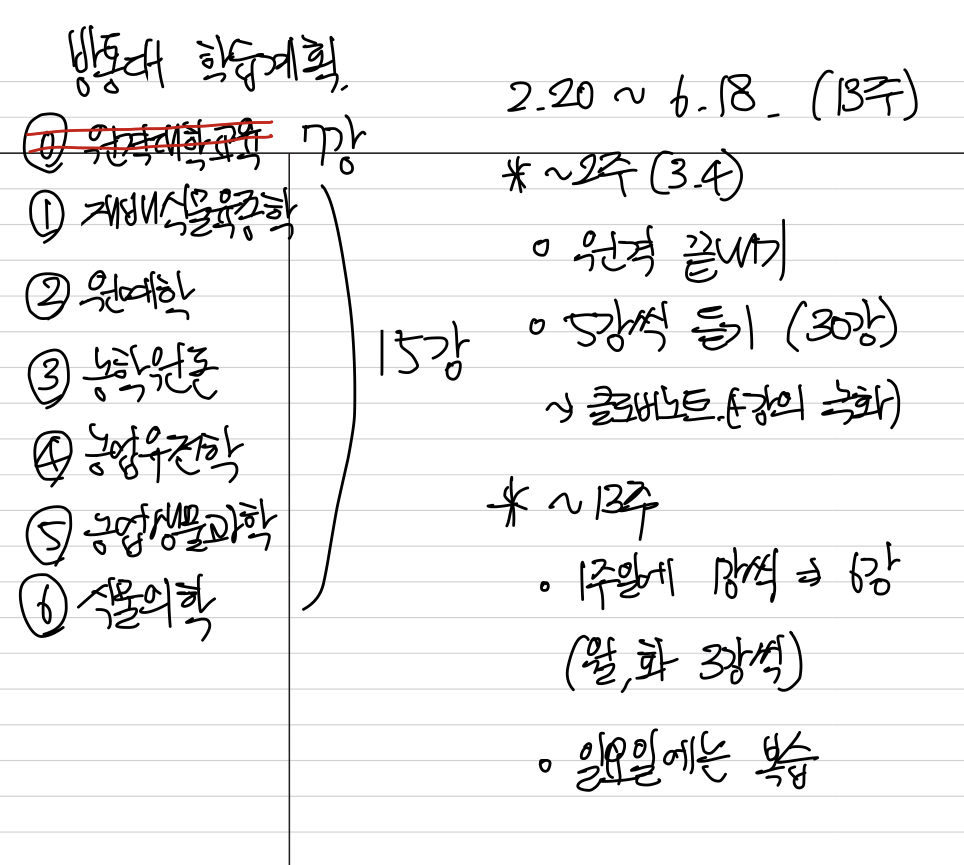 방통대 학습계획.
⓪ 원격대학교육 7강
① 재배식물육종학
② 원예학
③ 농학원론
④ 농업유전학
⑤ 농업생물과학
⑥ 식물의학
15강
2.20 ~ 6.18. (13주)
* ~2주 (3.4)
◦ 원격 끝내기
◦ 5강씩 듣기 (30강)
↝ 클로버노트 (+강의 녹화)
* ~13주
• 1주일에 1강씩 ⇒ 6강
(월, 화 3강씩)
◦ 일요일에는 복습